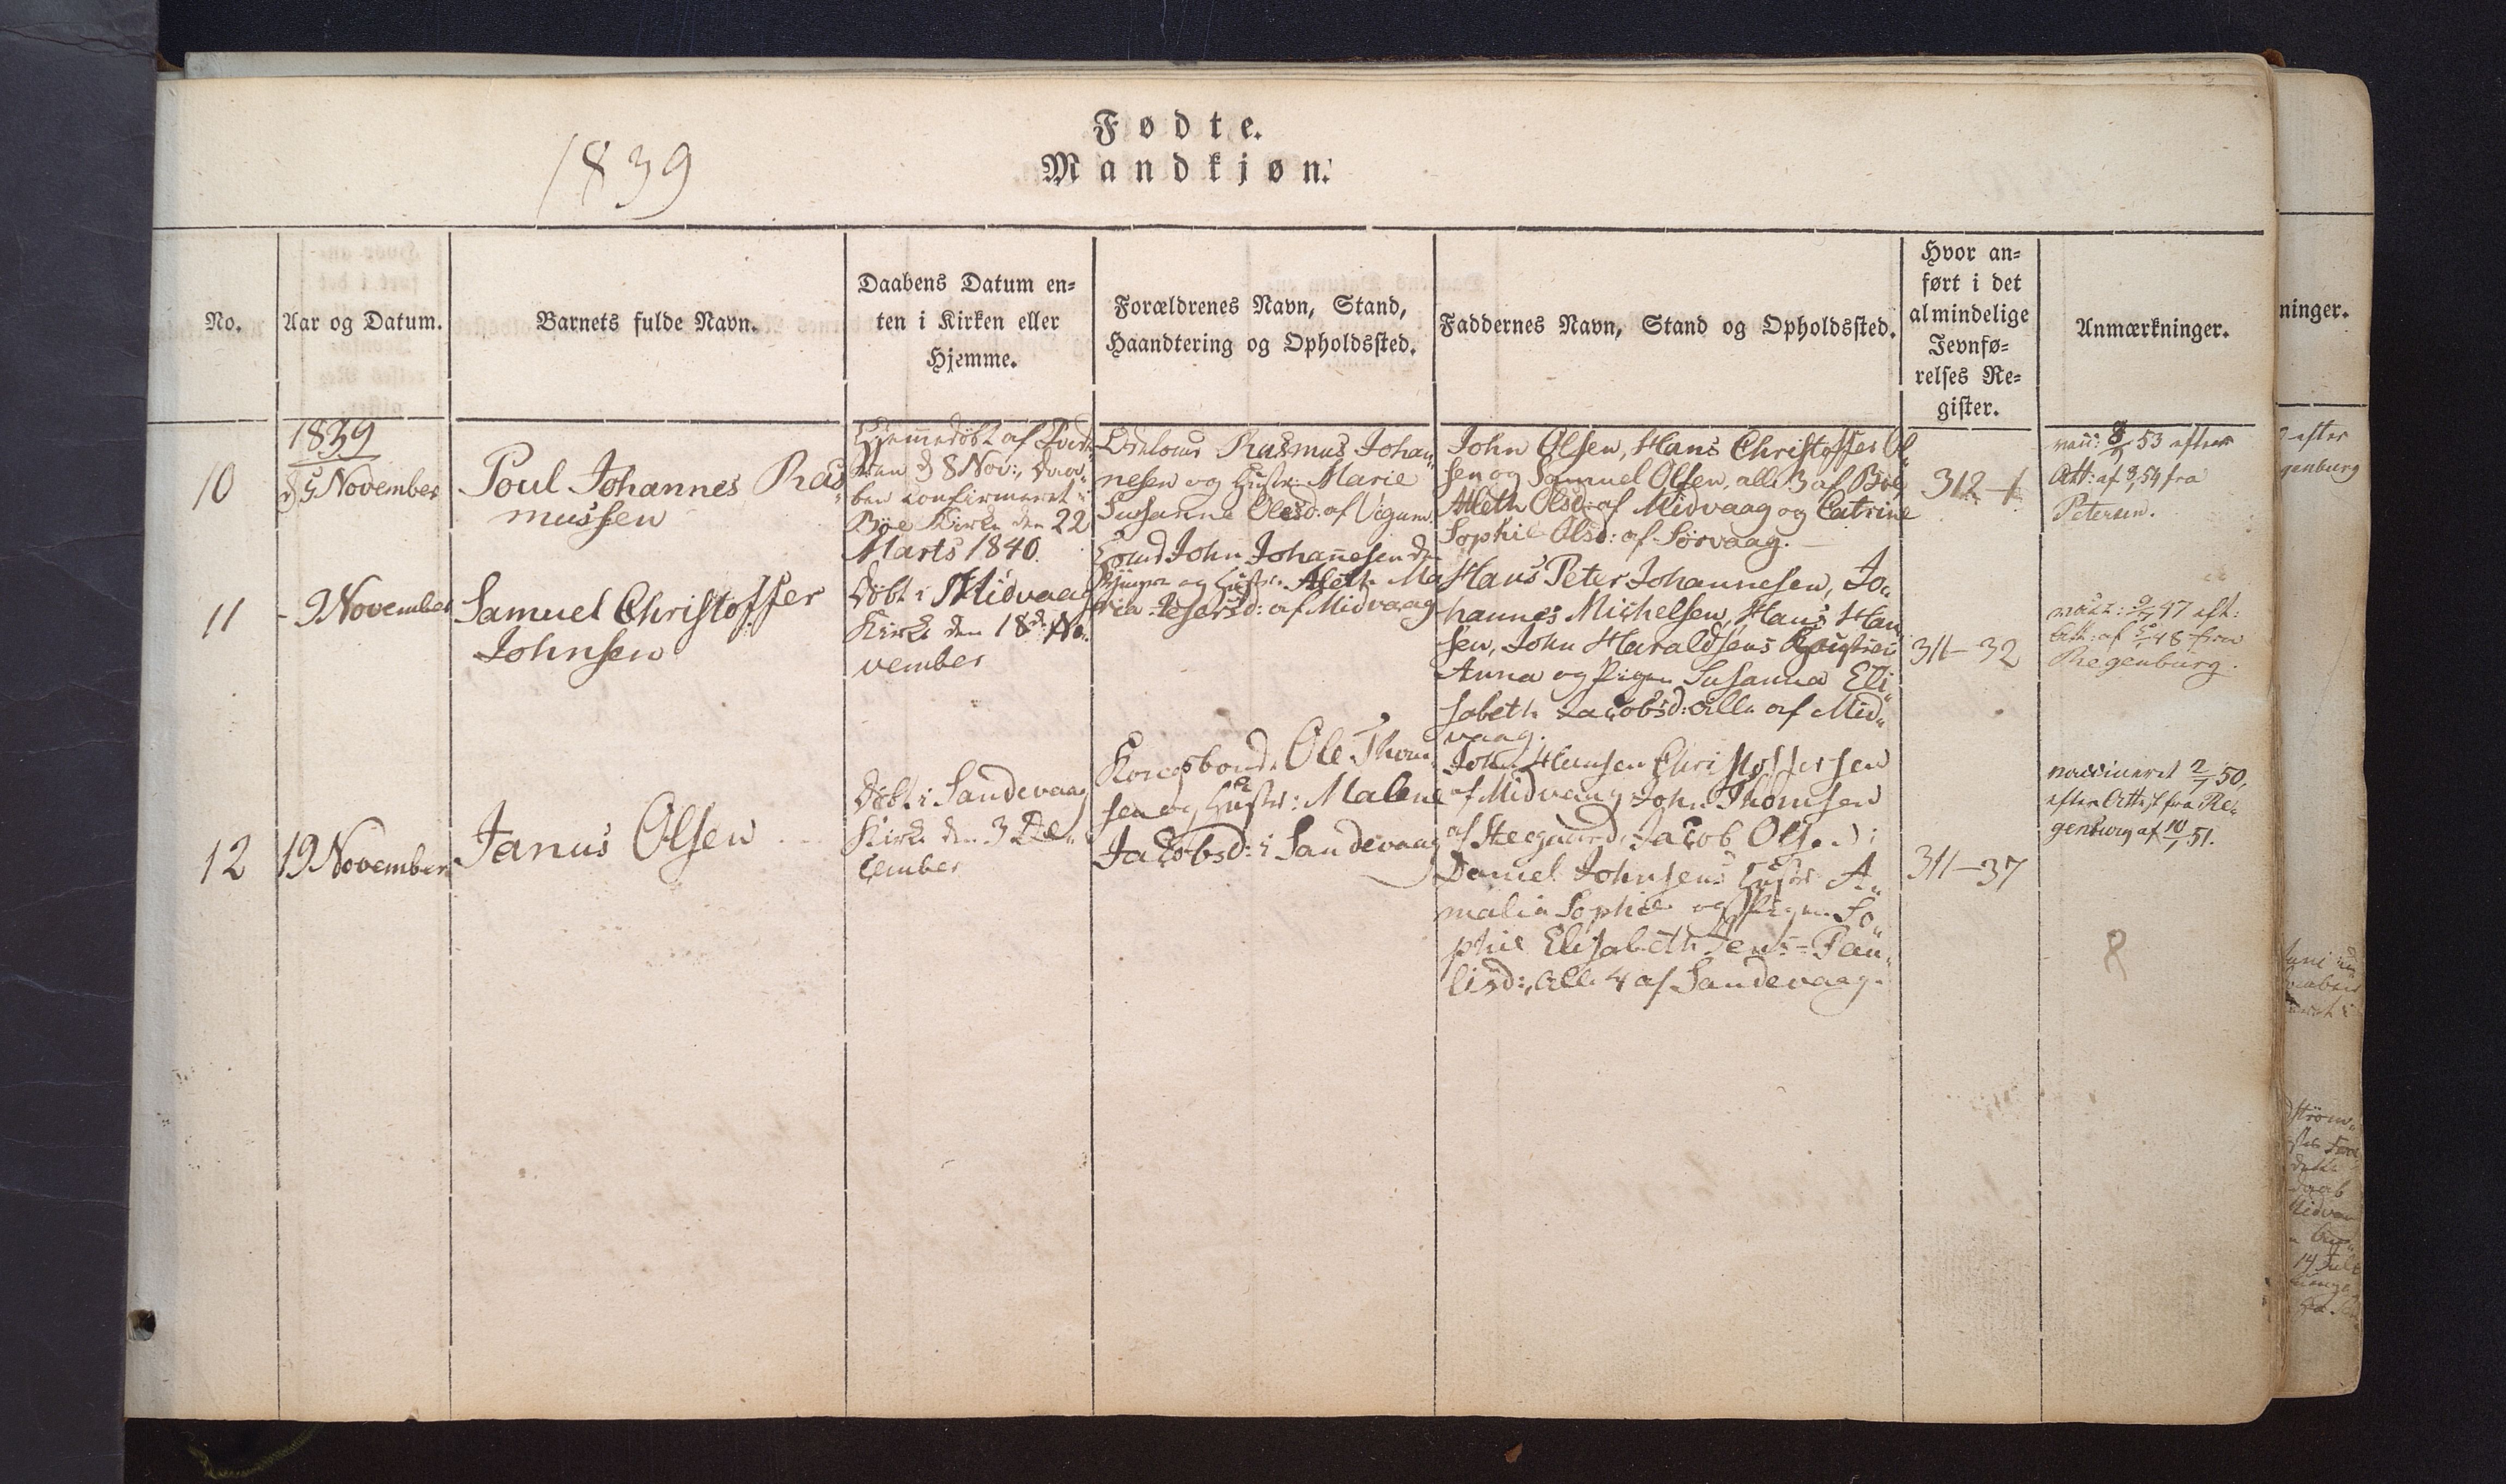 Fødte.
Mandkjøn.
1839
No.
Aar og Datum.
Barnets fulde Navn.
Daabens Datum en=
ten i Kirken eller
Hjemme.
Forældrenes Navn, Stand,
Haandtering og Opholdssted.
Faddernes Navn, Stand og Opholdssted.
Hvor an=
ført i det
almindelige
Jevnfø=
relses Re=
gister.
Anmærkninger.
10
1839
5 November
Poul Johannes Ras„
mussen
Hjemmedøbt af
den 8 Nov:,
ben confirmeret i
Bøe Kirke den 22
Marts 1840.
Rasmus Johan„
nesen og Hustr: Marie
Susanne Olesd: af
John Olsen, Hans Christoffer Ol„
sen og Samuel Olsen, alle 3 af Bøe,
Aleth Olsd: af Midvaag og Catrine
Sophie Olsd: af Sørvaag.
312-1
vacc: 53 efter
Att: af 54 fra
Petersen.
11
- 9 November
Samuel Christoffer
Johnsen
Døbt i Midvaag
Kirke den 18d: No„
vember
John Johannesen den
Yngre og Hustr: Aleth Ma
ria af Midvaag
Hans Peter Johannesen, Jo„
hannes Michelsen, Hans Han
sen, John Haraldsens Hustrue
Anna og Pigen Susanna Eli„
sabeth Jacobsd: alle af Mid„
vaag.
311-32
47 eft:
Att: af 48 fra
Regenburg.
12
19 November
Janus Olsen
Døbt i Sandevaag
Kirke den 3 De„
cember
Kongsbonde Ole Thom„
sen og Hustr: Malene
Jacobsd: i Sandevaag
John Hansen Christoffersen
af Midvaag, John Thomsen
af Steegaard, Jacob Olsen,
Daniel Johnsens Hustr A„
malia Sophie og Pigen So„
phie Elisabeth Jens=Pau„
lisd:, alle 4 af Sandevaag.
311-37
vaccineret 2/7 50,
efter Attest fra Re„
genburg af 10/7 51.
8
ninger.
efter
genburg